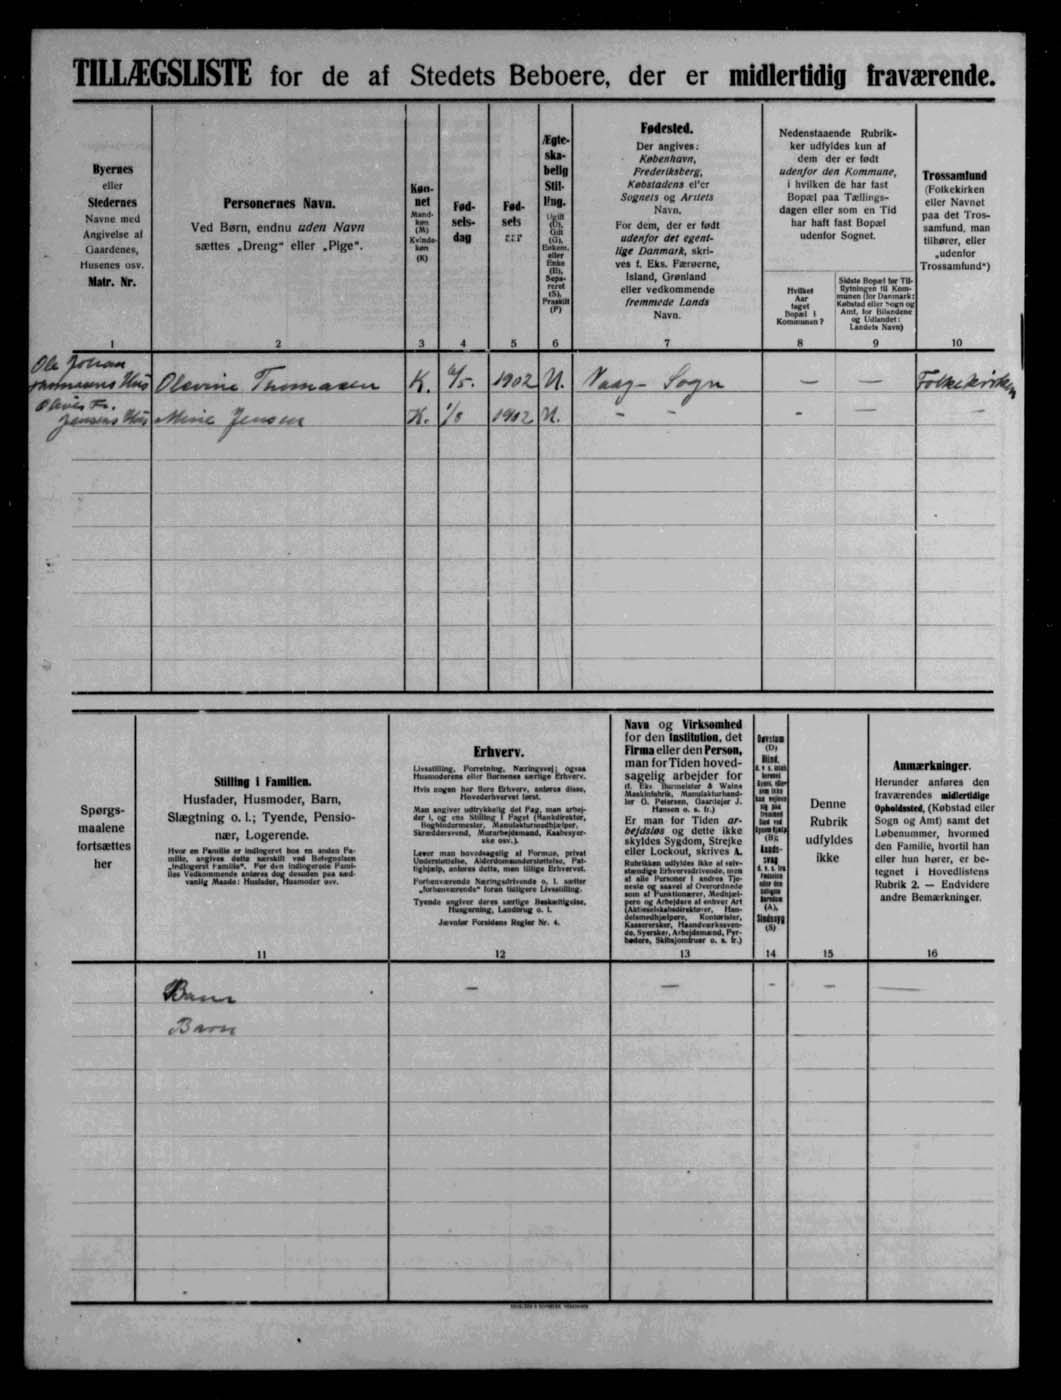 TILLÆGSLISTE for de af Stedets Beboere, der er midlertidig fraværende.
Byernes
eller
Stedernes
Navne med
Angivelse af
Gaardenes,
Husenes osv.
Matr. Nr.
1
Personernes Navn.
Ved Børn, endnu uden Navn
sættes „Dreng“ eller „Pige“.
2
Køn-
net
Mand-
køn
(M)
Kvinde-
køn
(K)
3
Fød-
sels-
dag
4
Fød-
sels
5
Ægte-
ska-
belig
Stil-
ling.
Ugift
(U),
Gift
(G),
Enkem.
eller
Enke
(E),
Sepa-
reret
(S),
Fraskilt
(F)
6
Fødested.
Der angives:
København,
Frederiksberg,
Købstadens el'er
Sognets og Amtets
Navn.
For dem, der er født
udenfor det egent-
lige Danmark, skri-
ves f. Eks. Færøerne,
Island, Grønland
eller vedkommende
fremmede Lands
Navn.
7
Nedenstaaende Rubrik-
ker udfyldes kun af
dem der er født
udenfor den Kommune,
i hvilken de har fast
Bopæl paa Tællings-
dagen eller som en Tid
har haft fast Bopæl
udenfor Sognet.
Hvilket
Aar
taget
Bopæl i
Kommunen?
8
Sidste Bopæl før Til-
flytningen til Kom-
munen (for Danmark:
Købstad eller Sogn og
Amt, for Bilandene
og Udlandet:
Landets Navn)
9
Trossamfund
(Folkekirken
eller Navnet
paa det Tros-
samfund, man
tilhører, eller
„udenfor
Trossamfund“)
10
Ole Johan
Thomasens Hus Olevine Thomasen K. 1902 U. Vaag - Sogn — — Folkekirken
Jensens Hus Mine Jensen K. 1/8 1902 U. - - - — —
Spørgs-
maalene
fortsættes
her
Stilling i Familien.
Husfader, Husmoder, Barn,
Slægtning o. l.; Tyende, Pensio-
nær, Logerende.
Hvor en Familie er indlogeret hos en anden Fa-
milie, angives dette særskilt ved Betegnelsen
„indlogeret Familie“. For den indlogerede Fami-
lies Vedkommende anføres dog desuden paa sæd-
vanlig Maade: Husfader, Husmoder osv.
11
Erhverv.
Livsstilling, Forretning, Næringsvej; ogsaa
Husmoderens eller Børnenes særlige Erhverv.
Hvis nogen har flere Erhverv, anføres disse,
Hovederhvervet først.
Man angiver udtrykkelig det Fag, man arbej-
der i, og ens Stilling i Faget (Bankdirektør,
Bogbindermester, Manufakturmedhjælper,
Skræddersvend, Murarbejdsmand, Kaabesyer-
ske osv.).
Lever man hovedsagelig af Formue, privat
Understøttelse, Alderdomsunderstøttelse, Fat-
tighjælp, anføres dette, men tillige Erhvervet.
Forhenværende Næringsdrivende o. l. sætter
„forhenværende“ foran tidligere Livsstilling.
Tyende angiver deres særlige Beskæftigelse,
Husgerning, Landbrug o. l.
Jævnfør Forsidens Regler Nr. 4.
12
Navn og Virksomhed
for den Institution, det
Firma eller den Person,
man for Tiden hoved-
sagelig arbejder for
(f. Eks. Burmeister & Wains
Maskinfabrik, Manufakturhand-
ler G. Petersen, Gaardejer J.
Hansen o. s. fr.)
Er man for Tiden ar-
bejdsløs og dette ikke
skyldes Sygdom, Strejke
eller Lockout, skrives A.
Rubrikken udfyldes ikke af selv-
stændige Erhvervsdrivende, men
af alle Personer i andres Tje-
neste og saavel af Overordnede
som af Funktionærer, Medhjæl-
pere og Arbejdere af enhver Art
(Aktieselskabsdirektører, Han-
delsmedhjælpere, Kontorister,
Kassererske, Haandværkssven-
de, Syersker, Arbejdsmænd, Fyr-
bødere, Skibsjomfruer o. s. fr.)
13
Døvstum
(D)
Blind,
(B);
Aands-
svag
(A),
Sindssyg
(S)
14
Denne
Rubrik
udfyldes
ikke
15
Anmærkninger.
Herunder anføres den
fraværendes midlertidige
Opholdssted, (Købstad eller
Sogn og Amt) samt det
Løbenummer, hvormed
den Familie, hvortil han
eller hun hører, er be-
tegnet i Hovedlistens
Rubrik 2. — Endvidere
andre Bemærkninger.
16
Barn — — - — —
Barn